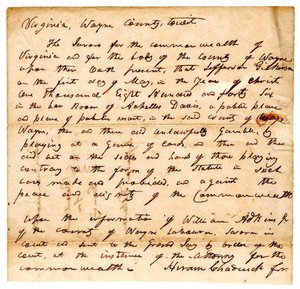 Virginia, Wayne County, Court
The Jurors for the commonwealth of
Virginia and for the body of the County of Wayne
upon their Oath present, that Jefferson
on the first day of May, in the year of Christ
One Thousand Eight Hundred and forty Six
in the bar Room of Davis, a public place
and place of public resort, in the said county of
Wayne, did then and there unlawfully Gamble, by
playing at a Game of cards, and then and there
did bet on the sides and hand of those playing
contrary to the form of the Statute in such
cases made and provided, and against the
peace and dignity of the Commonwealth
upon the information of William Adkins Jr
of the county of Wayne Laborer, Sworn in
court and sent to the Grand Jury by order of the
court, at the instance of the Attorney for the
commonwealth - Hiram Chadwick for